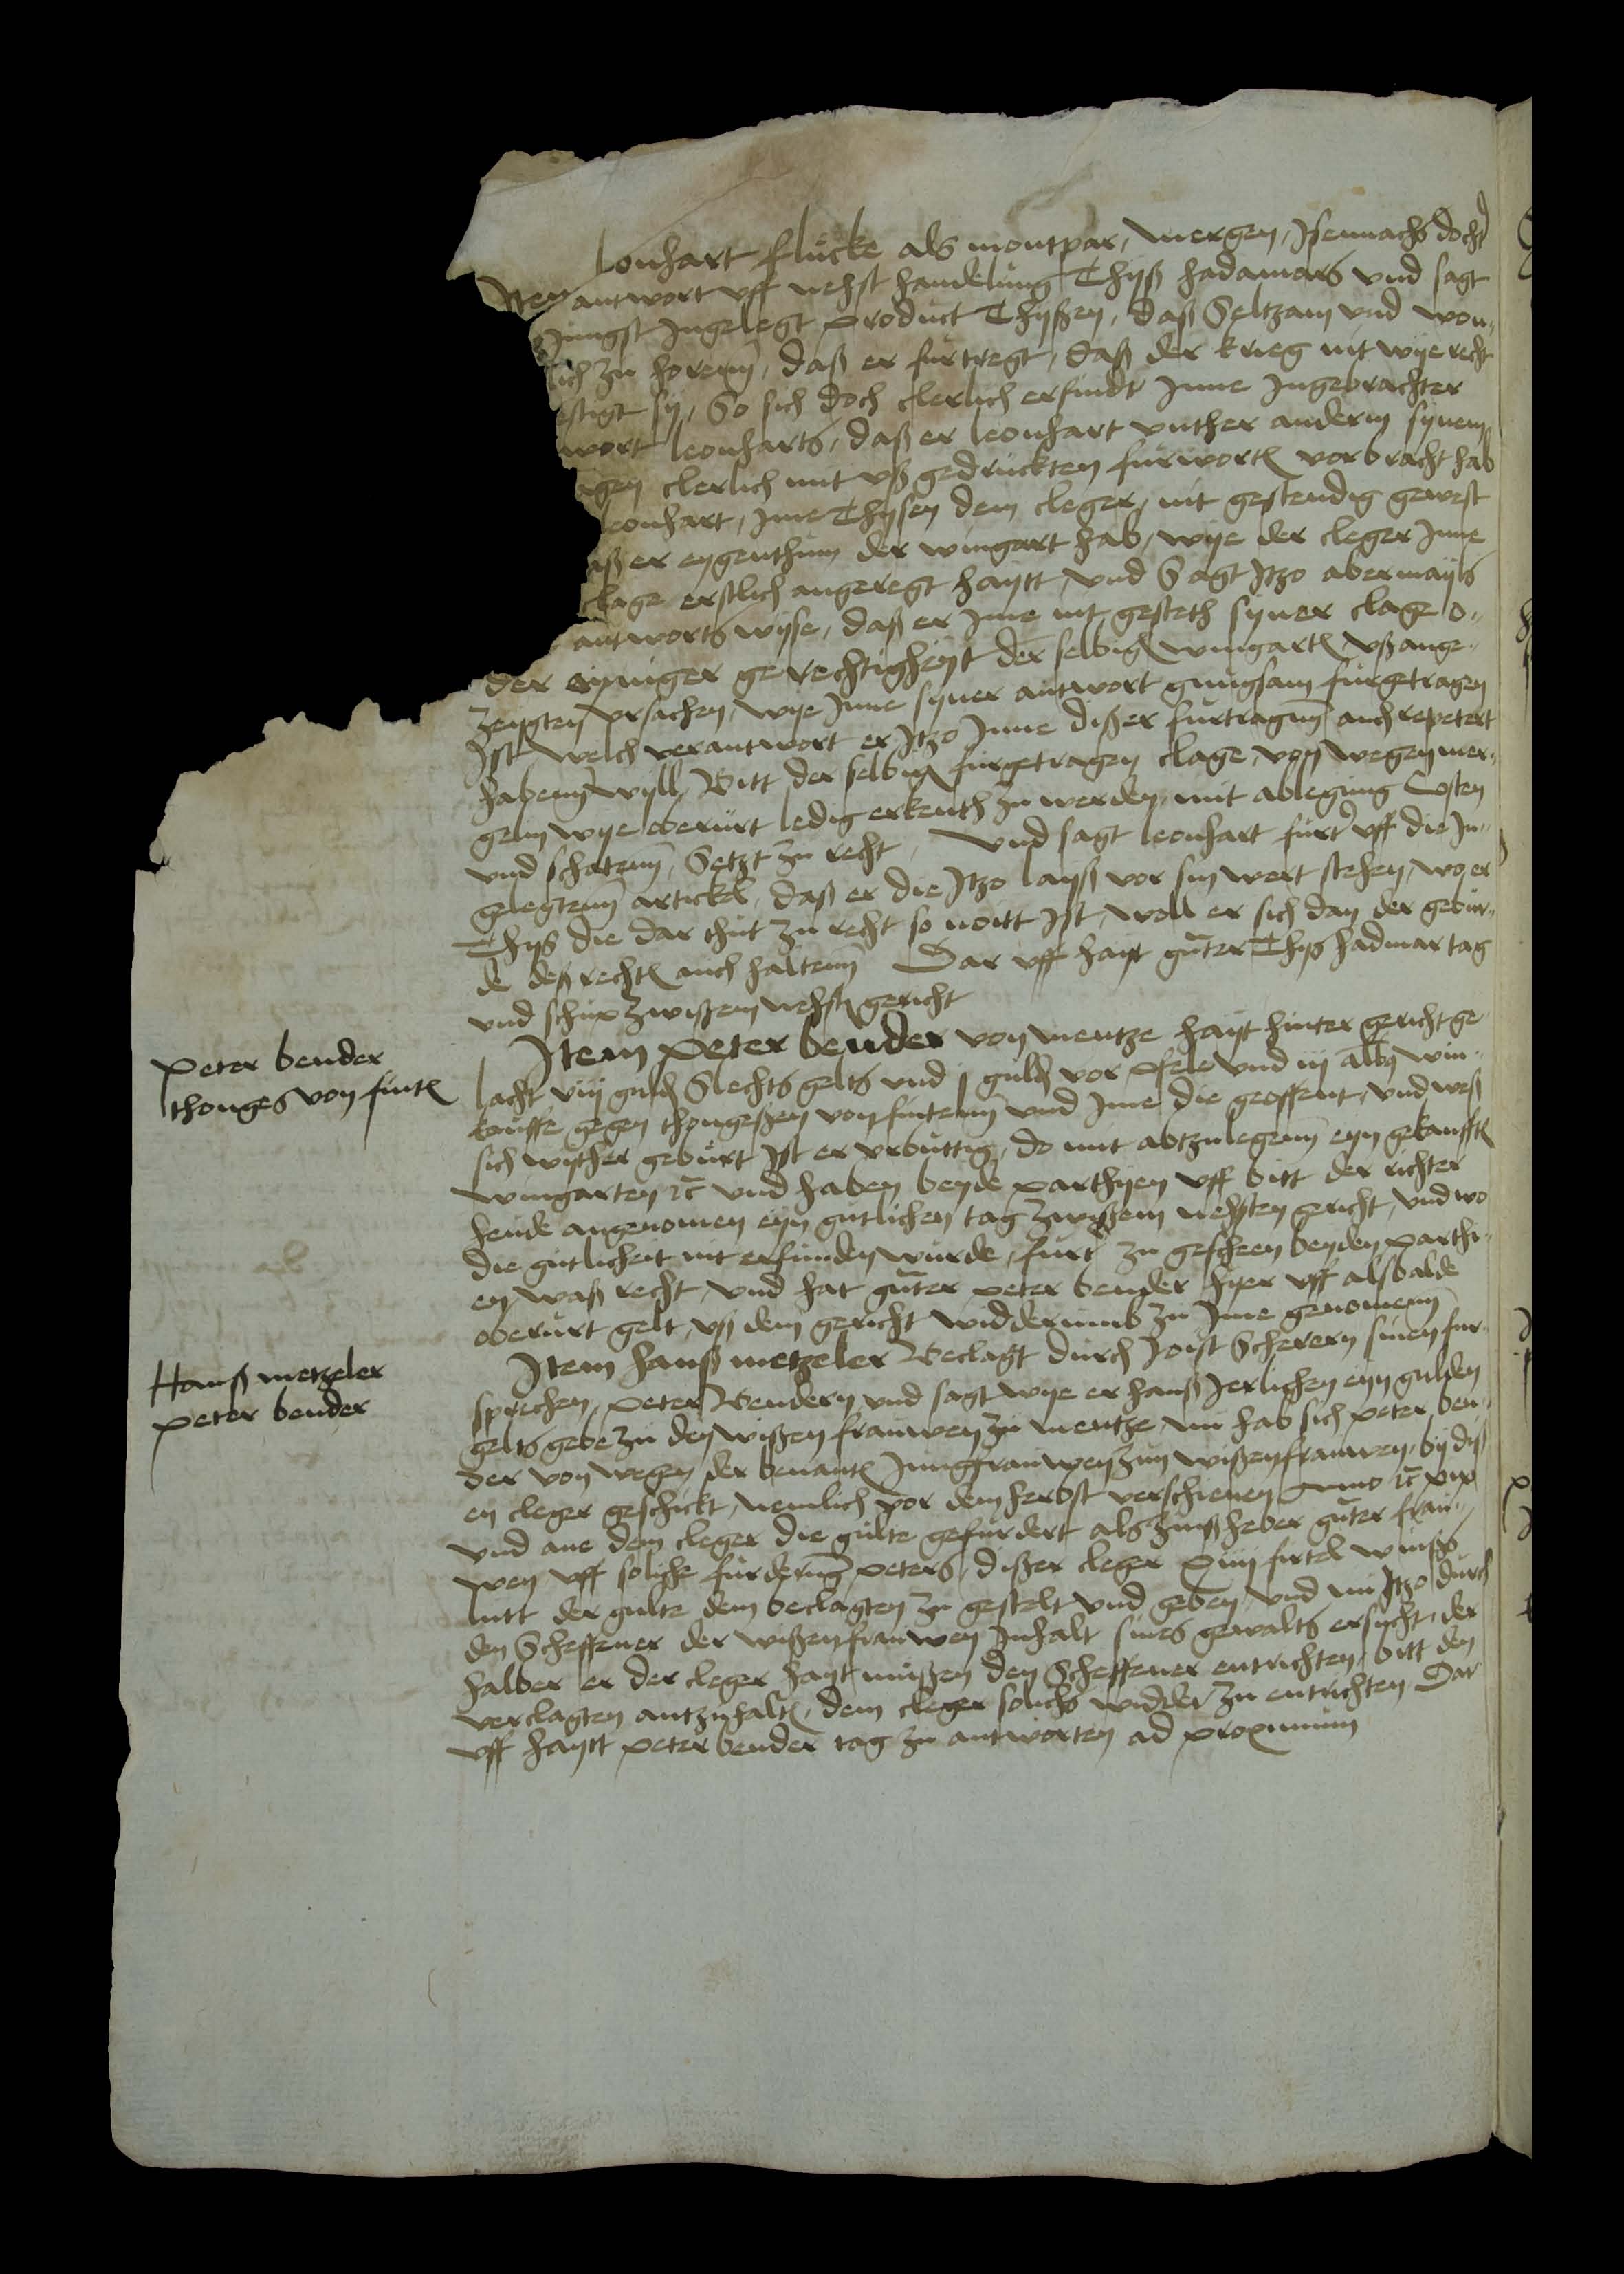 lonhart flucke als montpar, mergen, Jsenmachs docht
Jren antwort vff nehst handelung Thyß hadamars vnd sagt
Jungst Jngelegt product Thyßen, daß Seltzam vnd won„
lich zu horenn, daß er furtregt, daß der krieg nit wye recht
estigt sy, So sich doch clerlich erfindt Jnne Jngebrachter
wort leonharts, daß er leonhart vnther anderm synem
agen clerlich mit vßgedruckten furwort vorbracht hab
leonhart, Jme Thysen dem cleger, nit gestendig gewest
aß er eygenthum der wingart hab, wye der cleger Jnne
clage erstlich angeregt haytt, vnd Sagt Jtzo abermayls
antworts wyse, daß er Jme nit gesteth syner clage o„
der eyniger gerechtigheyt der selbig wingart vßange„
zeygten vrsachen, wye Jnne syner antwort gnugsam furgetragen
Jst welch verantwort er Jtzo Jnne dißer furtragung auch repetert
habenn wyll, Bitt der selbig furgetragen clage, von wegen mer„
genn wye oberurt ledig erkenth zu werden, mit ablegung Costen
vnd schatenn, Setzt zu recht, Vnd sagt leonhart furt vff die Jn„
gelegtenn artickel, daß er die Jtzo layß vor sin wert stehen, wo er
Thyß die dar thut zu recht so noitt Jst, woll er sich dan der gebur„
de deß recht auch haltenn Dar vff hayt guter Thyß hadmar tag
vnd schup zwißem nehst gericht
Peter bender
thonges von fint
Jtem Peter bender von mentze hayt hinter gericht ge
lacht viij guld Slechts gelts vnd j guld vor Pfele vnd iij alb win„
kauffe gegen thongeßen von fintenn vnd Jme die geoffent, vnd weß
sich wyther geburt Jst er vrbuttig, do mit abtzulegenn eyn gekaufft
wingarten ꝛc vnd haben beyde parthyen vff bitt der richter
hende angenomen eyn gutlichen tag zwißem nehsten gericht, vnd wo
die gutlicheit nit erfunden wurde, furt zu gescheen beyden parthi„
en waß recht, vnd hat guter peter bender hyer vff alsbalde
oberurt gelt, vß dem gericht widderumb zu Jme genomenn
Hanß metzeler
peter bender
Jtem hanß metzeler Beclagt durch Joist Scherern sinen fur„
sprechen, peter Bendern vnd sagt wye er hanß Jerlichen eyn gulden
gelts gebe zu den wißen frauwen zu mentze, nu hab sich peter ben„
der von wegen der benant Jungfrauwen zun wißenfrauwen, by diß
en cleger geschickt, nemlich vor dem herbst verschienen Anno ꝛc xix
vnd ane dem cleger die gulte gefurdert als zinßheber guter frau„
wen vff soliche furderung peters, dißer cleger xiiij firtel winßs
lutt der gulte dem beclagten zu gestelt vnd geben vnd nu Jtzo durch
den Scheffener der wißenfrauwen Jnhalt sines gewalts ersucht, der
halber er der cleger hayt mußen den Scheffener entrichten, bitt den
verclagten antzuhalt, dem cleger solichs widder zu entrichten Dar
vff haytt peter bender tag zu antworten ad proximum